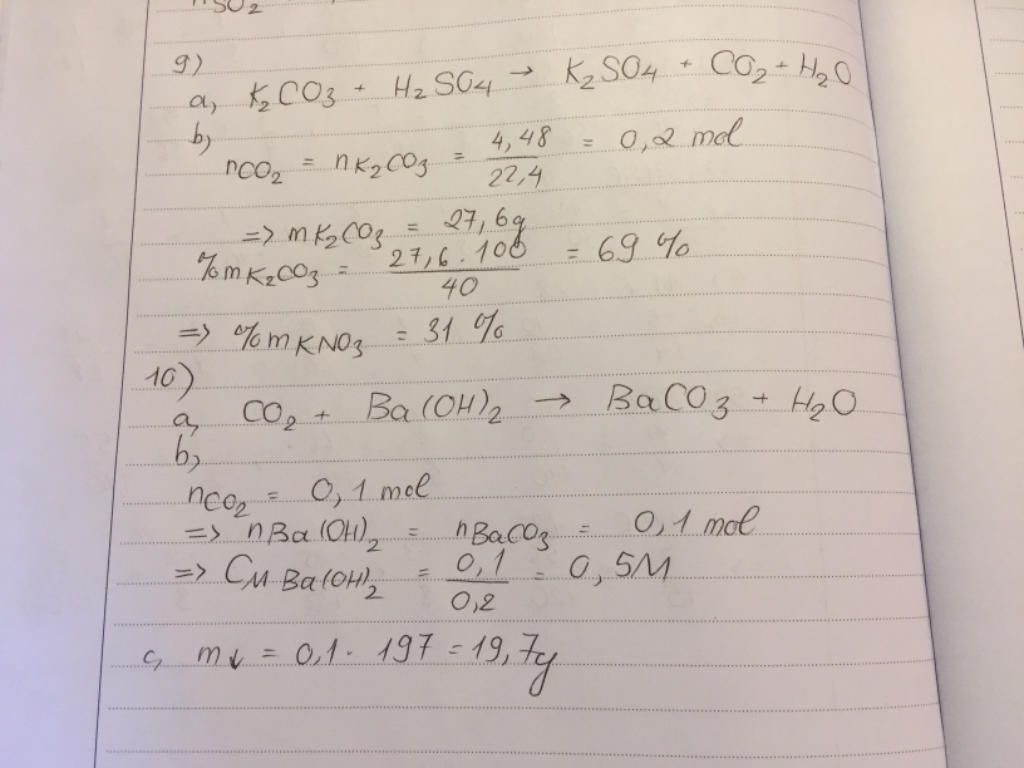 nSO2
9)
a, K2CO3 + H2SO4 → K2SO4 + CO2 + H2O
b,
nCO2 = nK2CO3 = 4,48/22,4 = 0,2 mol
=> mK2CO3 = 27,6g
%mK2CO3 = 27,6 . 100/40 = 69 %
=> %mKNO3 = 31 %
10)
a, CO2 + Ba(OH)2 → BaCO3 + H2O
b,
nCO2 = 0,1 mol
=> nBa(OH)2 = nBaCO3 = 0,1 mol
=> CM Ba(OH)2 = 0,1/0,2 = 0,5M
c, m↓ = 0,1 . 197 = 19,7g